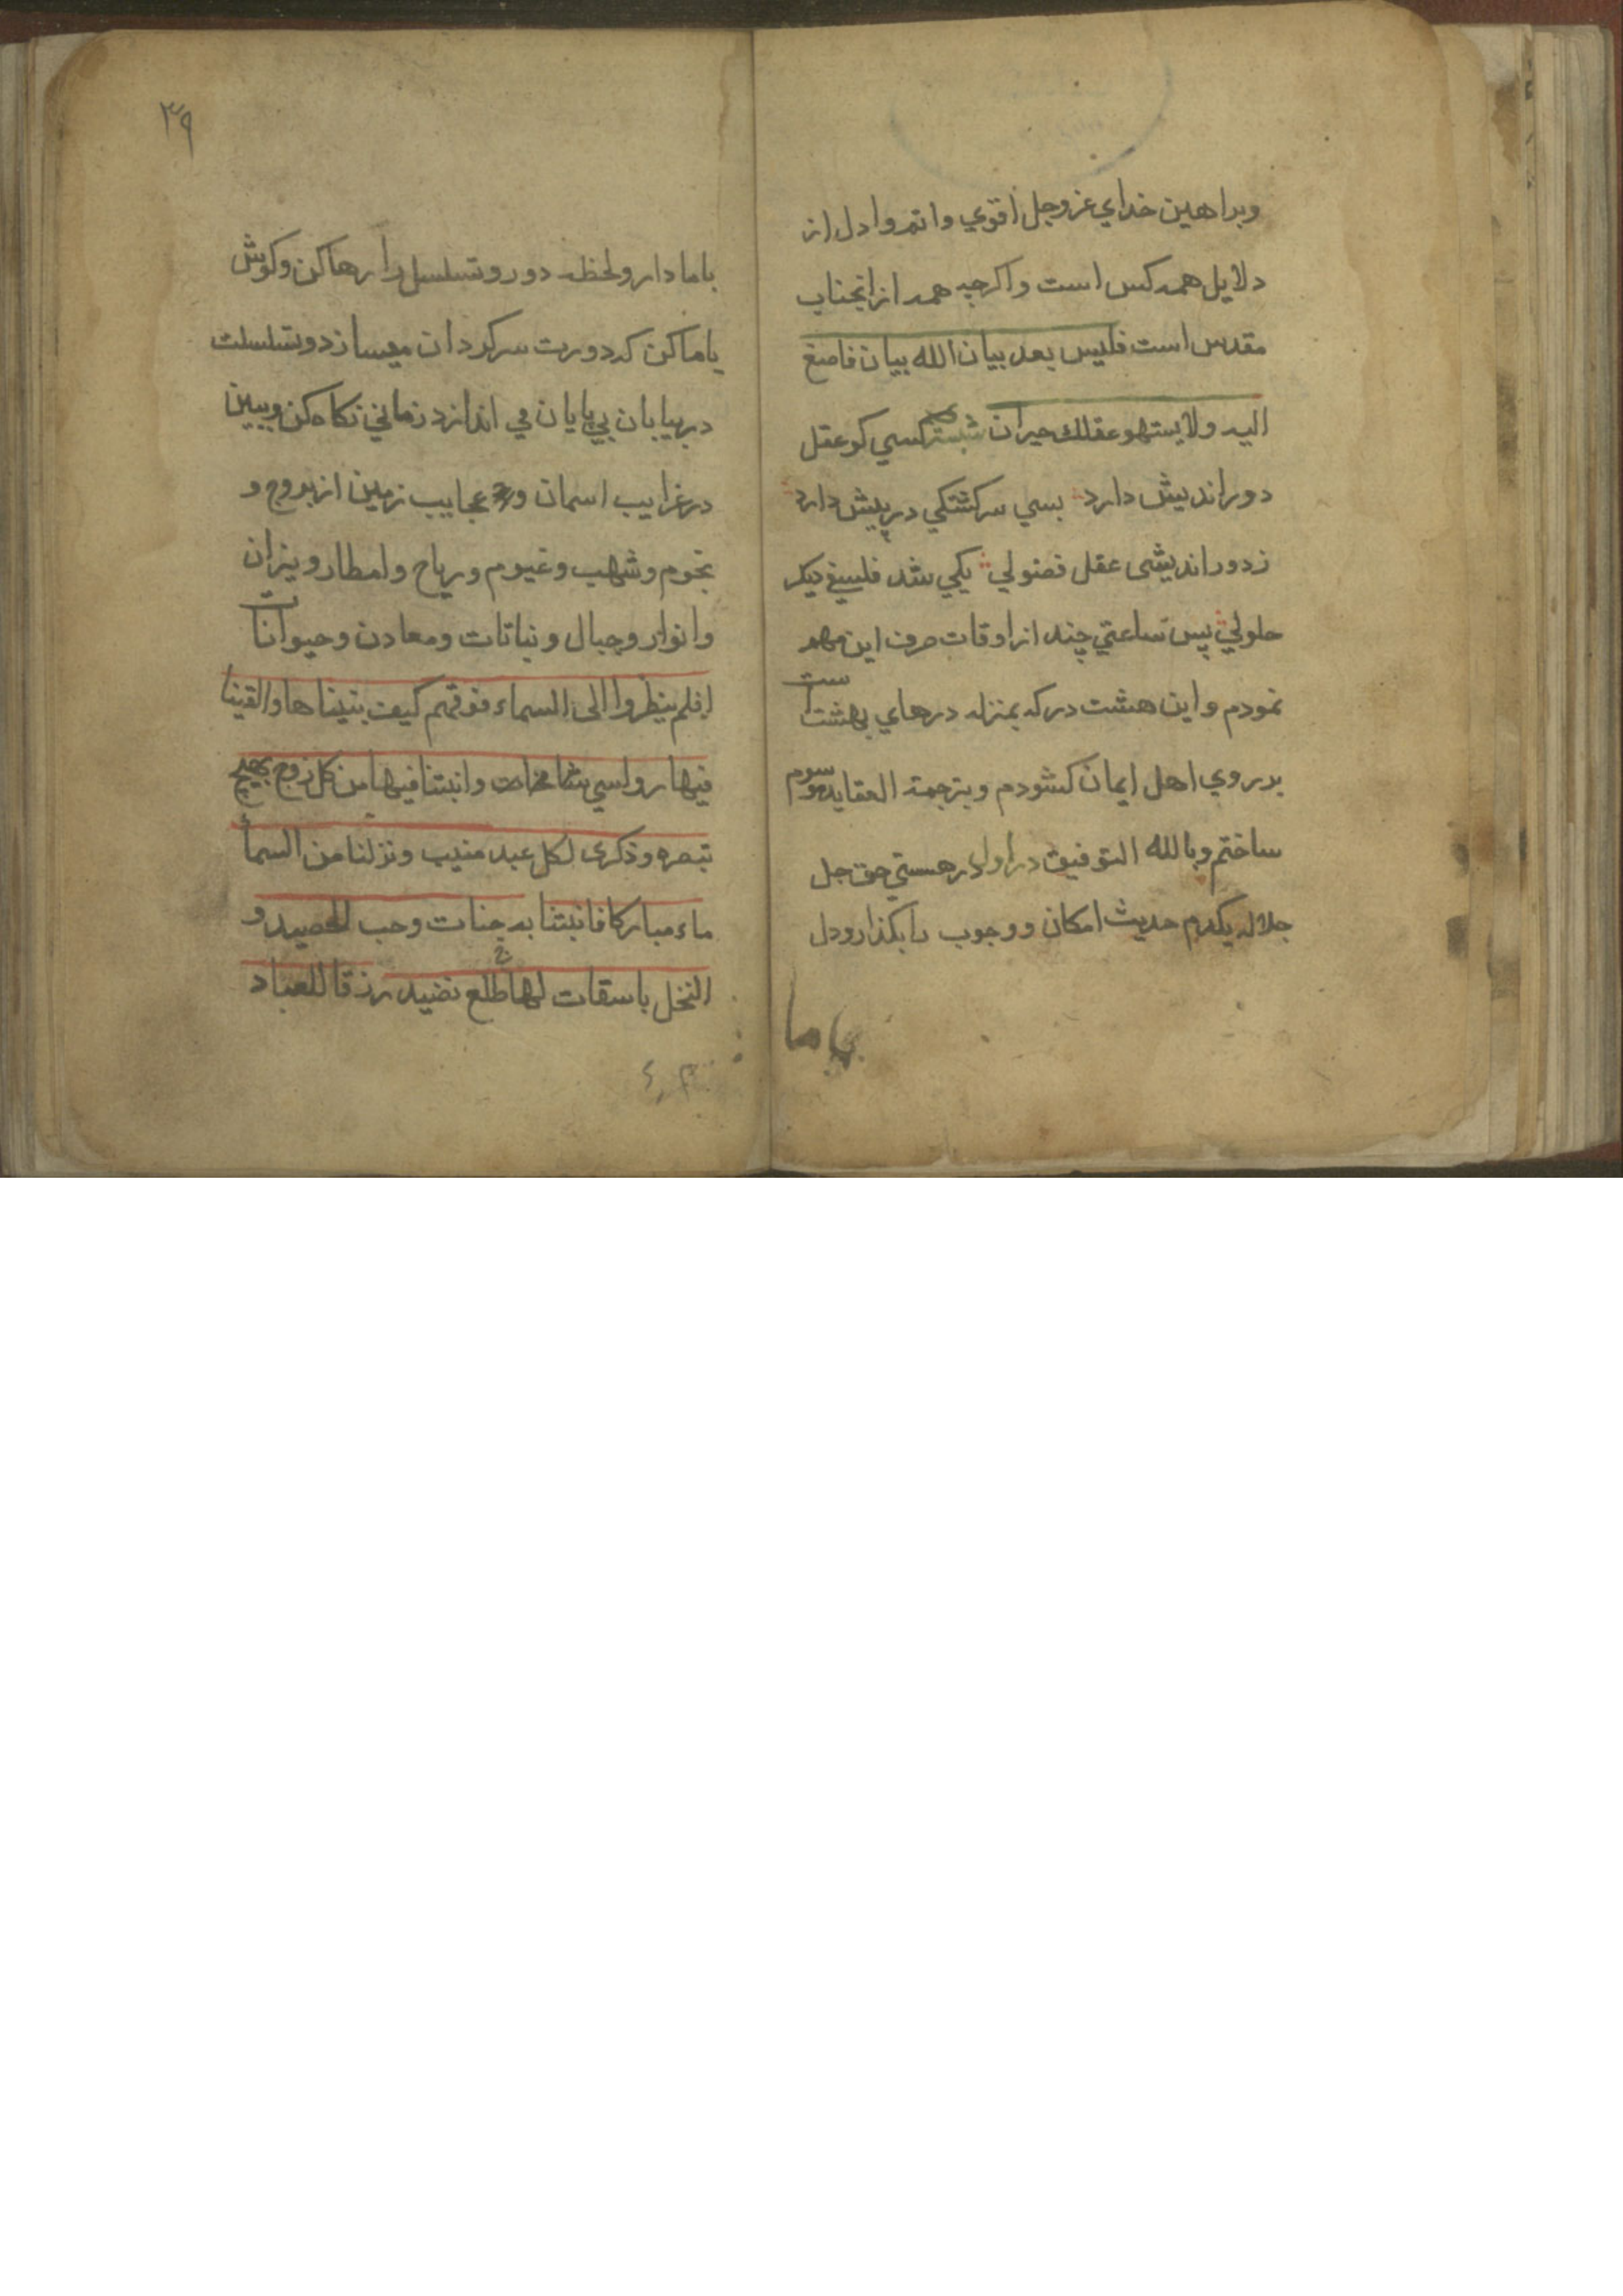 وبراهين خداي عزوجل اقوي واتم وادل از
دلايل همه كس است واكرچه همه ازانجناب
مقدس است فليس بعد بيان الله بيان فاصغ
اليه ولا يستهو عقلك حيران شبستر كسي كو عقل
دورانديش دارد بسي سركشتكي درپيش دارد
زدورانديشى عقل فضولي يكي شد فلسفي ديكر
حلولي پس ساعتي چند از اوقات صرف اين مهم
نمودم واين هشت در كه بمنزله درهاي بهشت است
بر روي اهل ايمان كشودم وبترجمة العقايد موسوم
ساختم وبالله التوفيق در اول در هستي حق جل
جلاله يكدم حديث امكان ووجوب را بكذار ودل
با ما
٣٩
باما دار ولحظه دور وتسلسل را رها كن وكوش
ياما كن كه دورت سركردان ميسازد وتسلسلت
در بيابان بي پايان مي اندازد زماني نكاه كن وببين
در غرايب اسمان و عجايب زمين از بروج و
نجوم وشهب وغيوم ورياح وامطار ونيران
وانوار وجبال ونباتات ومعادن وحيوانات
افلم ينظروا الى السماء فوقهم كيف بنيناها والقينا
فيها رواسي شامخات وانبتنا فيها من كل زوج بهيج
تبصره وذكرى لكل عبد منيب ونزلنا من السماء
ماء مباركا فانبتنا به جنات وحب الحصيد و
النخل باسقات لها طلع نضيد رزقا للعباد